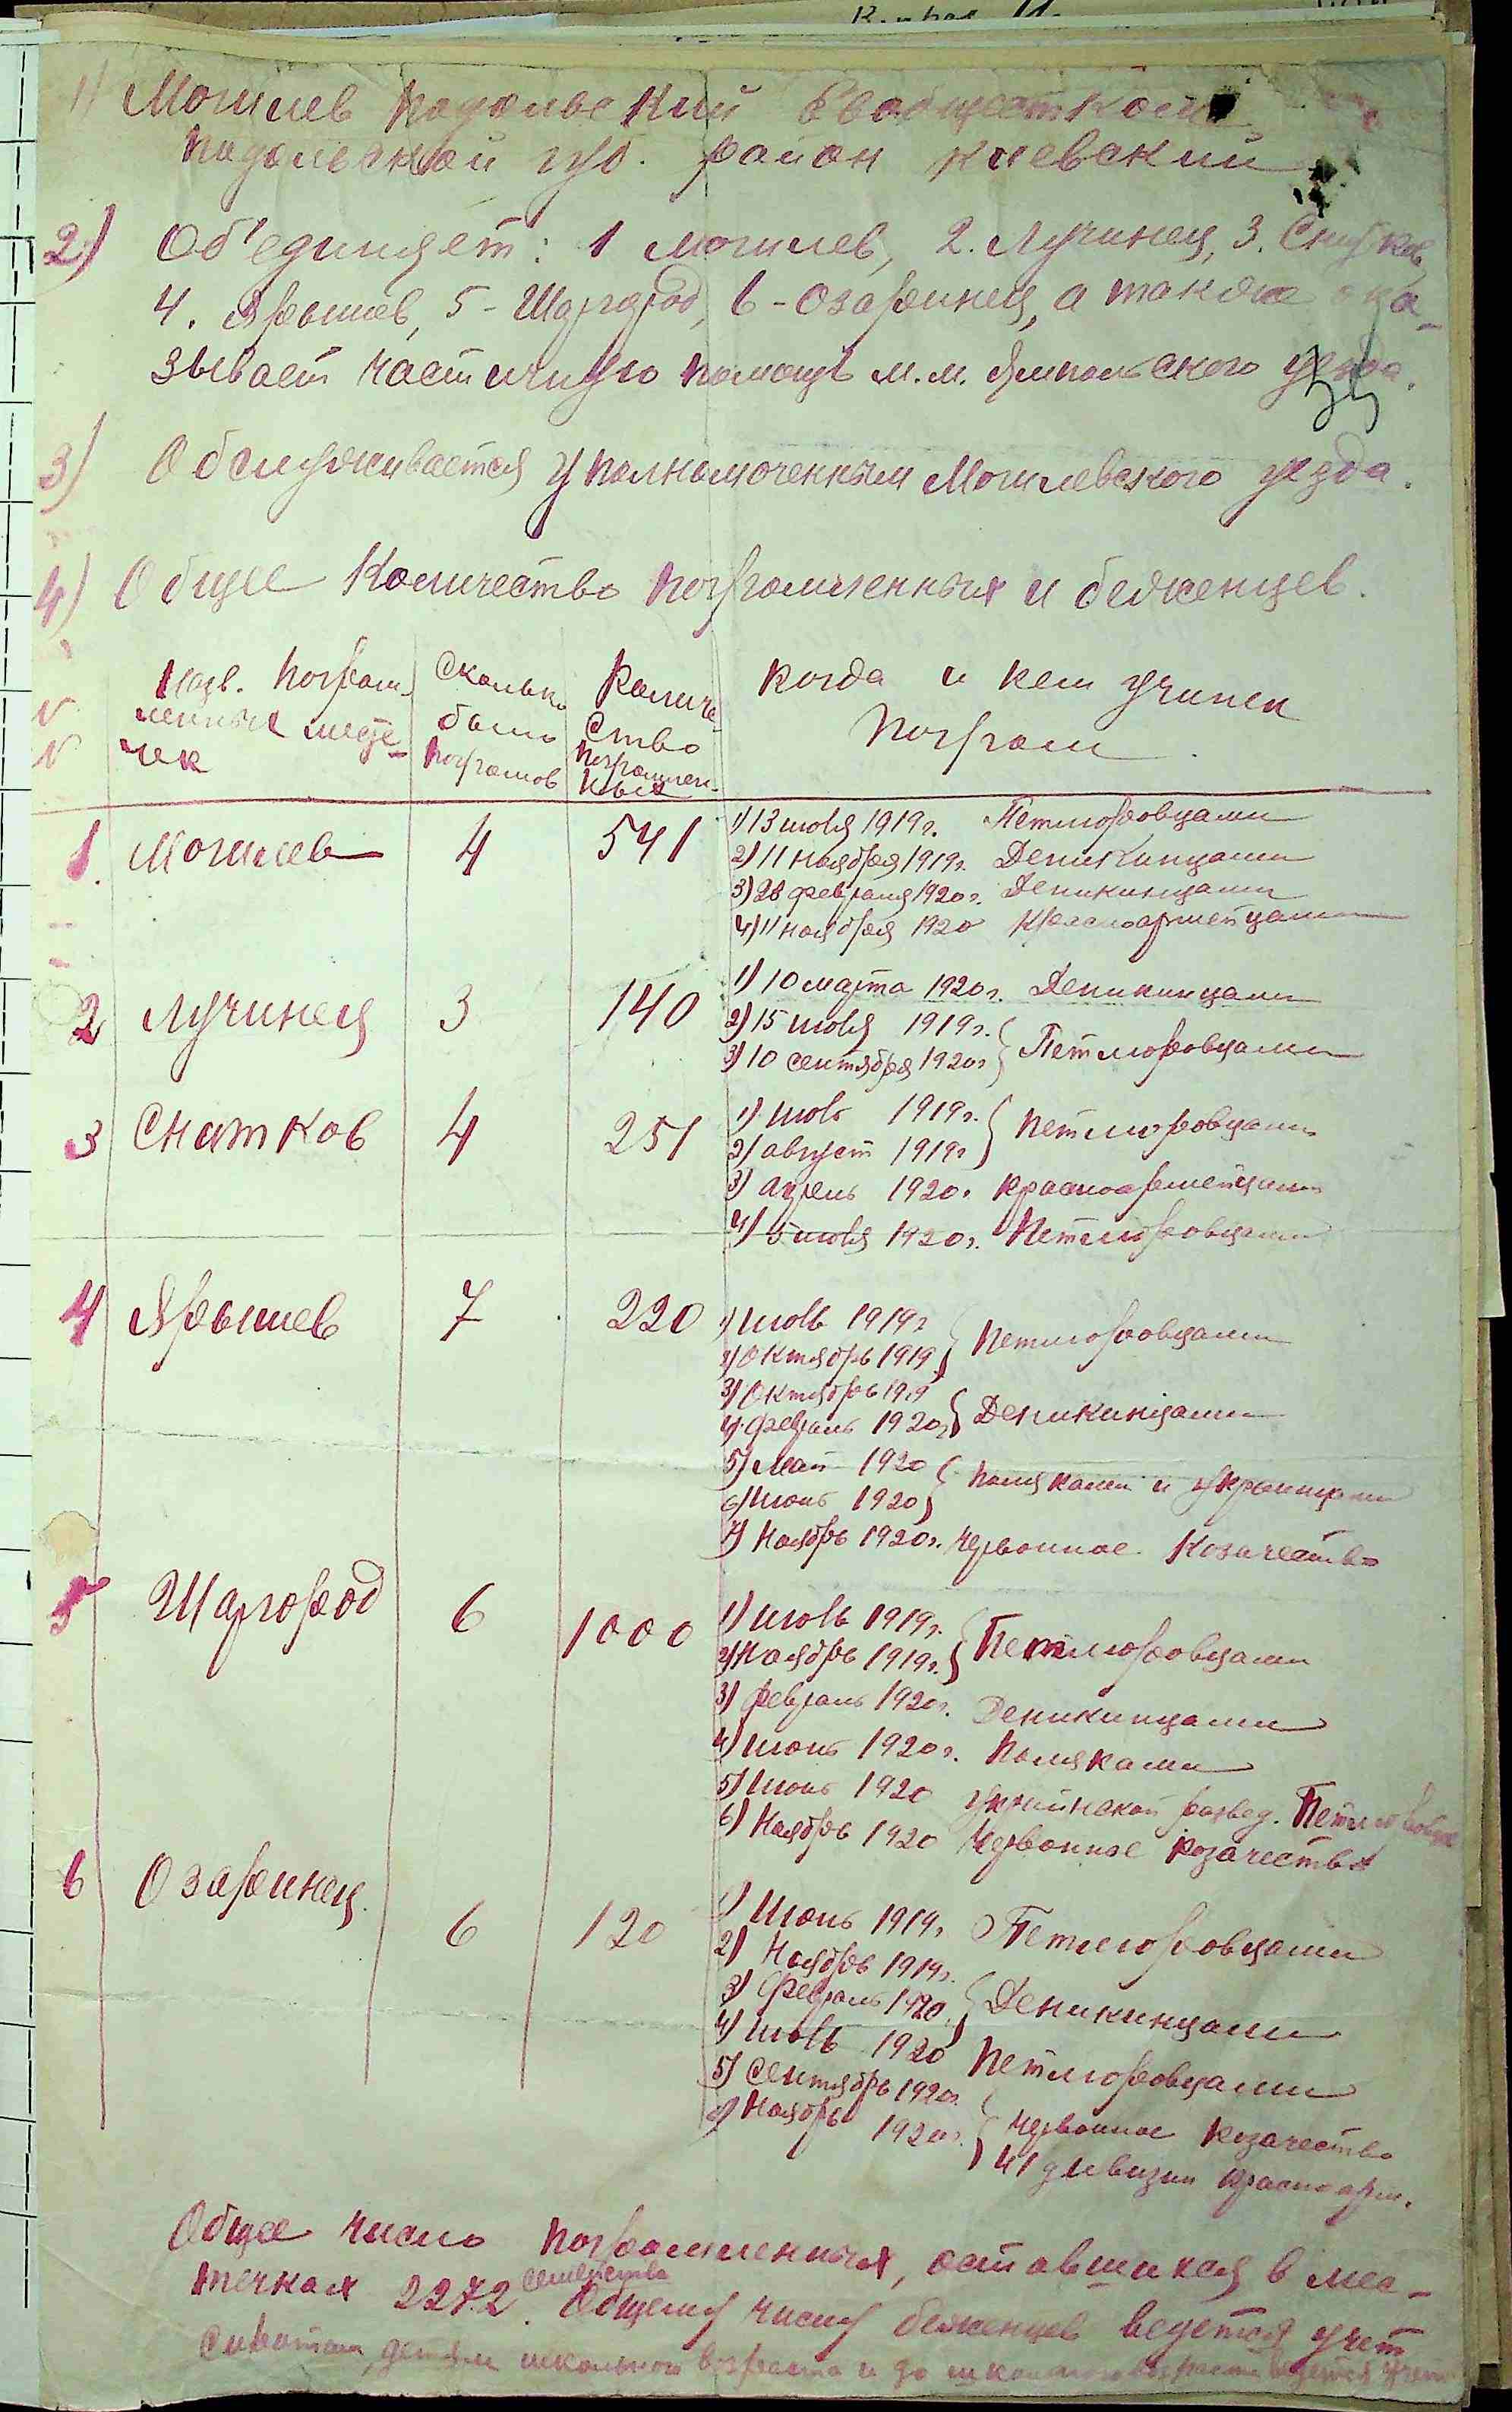 1) Могилев Подольский Евобщестком
Подольской губ. район киевский
2) Об'единяет: 1 Могилев, 2. Лучинец, 3. Снитков,
4. Ярышев, 5-Шаргород, 6-Озаринец, а также ока-
зывает частичную помощь м.м. Ямпольского уезда.
3) Обслуживается Уполномоченным Могилевского уезда.
4) Общее Количество погромленных и беженцев.
NN
Назв. погром-
ленных месте-
чек
Сколько
было
погромов
Количе-
ство
погромлен-
ных
когда и кем учинен
погром
1. Могилев 4 541 1) 13 июля 1919 г. Петлюровцами
2) 11 ноября 1919 г. Деникинцами
3) 28 февраля 1920 г. Деникинцами
4) 11 ноября 1920 Красноармейцами
2 Лучинец 3 140 1) 10 марта 1920 г. Деникинцами
2) 15 июля 1919 г.
3) 10 сентября 1920 г } Петлюровцами
3 Снитков 4 251 1) Июль 1919 г.
2) август 1919 г } Петлюровцами
3) апрель 1920 г. красноармейцами
4) 5 июля 1920 г. Петлюровцами
4 Ярышев 7 220 1) Июль 1919 г
2) Октябрь 1919 } Петлюровцами
3) Октябрь 1919
4) Февраль 1920 г } Деникинцами
5) Май 1920
6) Июнь 1920 } поляками и украинцами
7) Ноябрь 1920 г. Червонное Козачество
5 Шаргород 6 1000 1) Июль 1919 г.
2) Ноябрь 1919 г. } Петлюровцами
3) Февраль 1920 г. Деникинцами
4) Июнь 1920 г. Поляками
5) Июнь 1920 развед.
6) Ноябрь 1920 Червонное козачество
6 Озаринец. 6 120 1) Июнь 1919 г. Петлюровцами
2) Ноябрь 1919 г.
3) Февраль 1920 } Деникинцами
4) Июль 1920 Петлюровцами
5) Сентябрь 1920 г.
6) Ноябрь 1920 г. } Червонное козачество
41 дивизии красноарм.
Общее число погромленных, оставшихся в мес-
течках 2272 семейства. Общему числу беженцев ведется учет
Сиротам, детям школьного возраста и до школьного возраста ведется учет